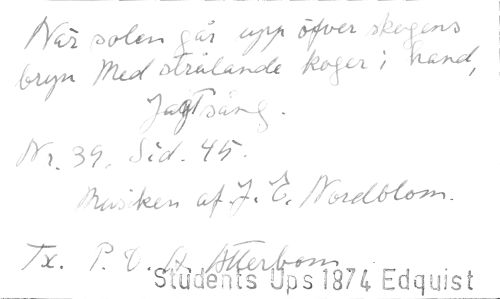 När solen går upp öfver skogens
bryn Med strålande koger i hand,
Jagtsång.
Nr. 39. Sid. 45.
Musiken af J. E. Nordblom.
Tx. P. D. A. Atterbom
Students Ups 1874 Edquist